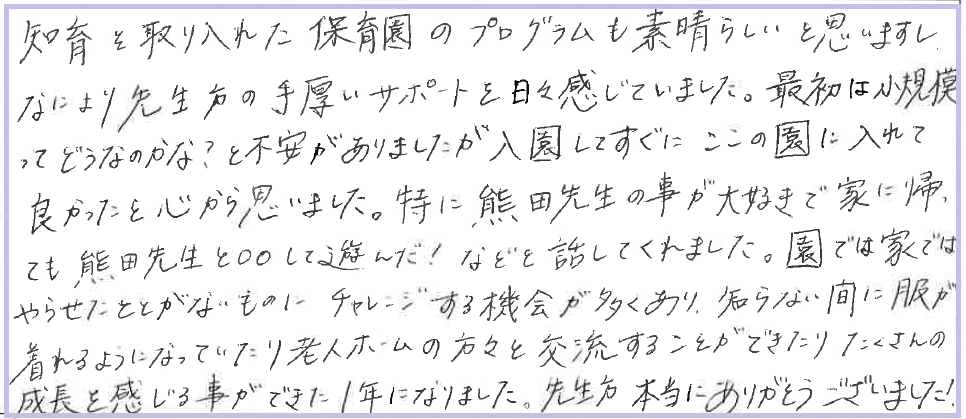 知育を取り入れた保育園のプログラムも素晴らしいと思いますし、
なにより先生方の手厚いサポートを日々感じていました。最初は小規模
ってどうなのかな?と不安がありましたが入園してすぐにここの園に入れて
良かったと心から思いました。特に熊田先生の事が大好きで家に帰っ
ても熊田先生と〇〇して遊んだ!などと話してくれました。園では家では
やらせたことがないものにチャレンジする機会が多くあり、知らない間に服が
着れるようになっていたり老人ホームの方々と交流することができたりたくさんの
成長を感じる事ができた1年になりました。先生方本当にありがとうございました!